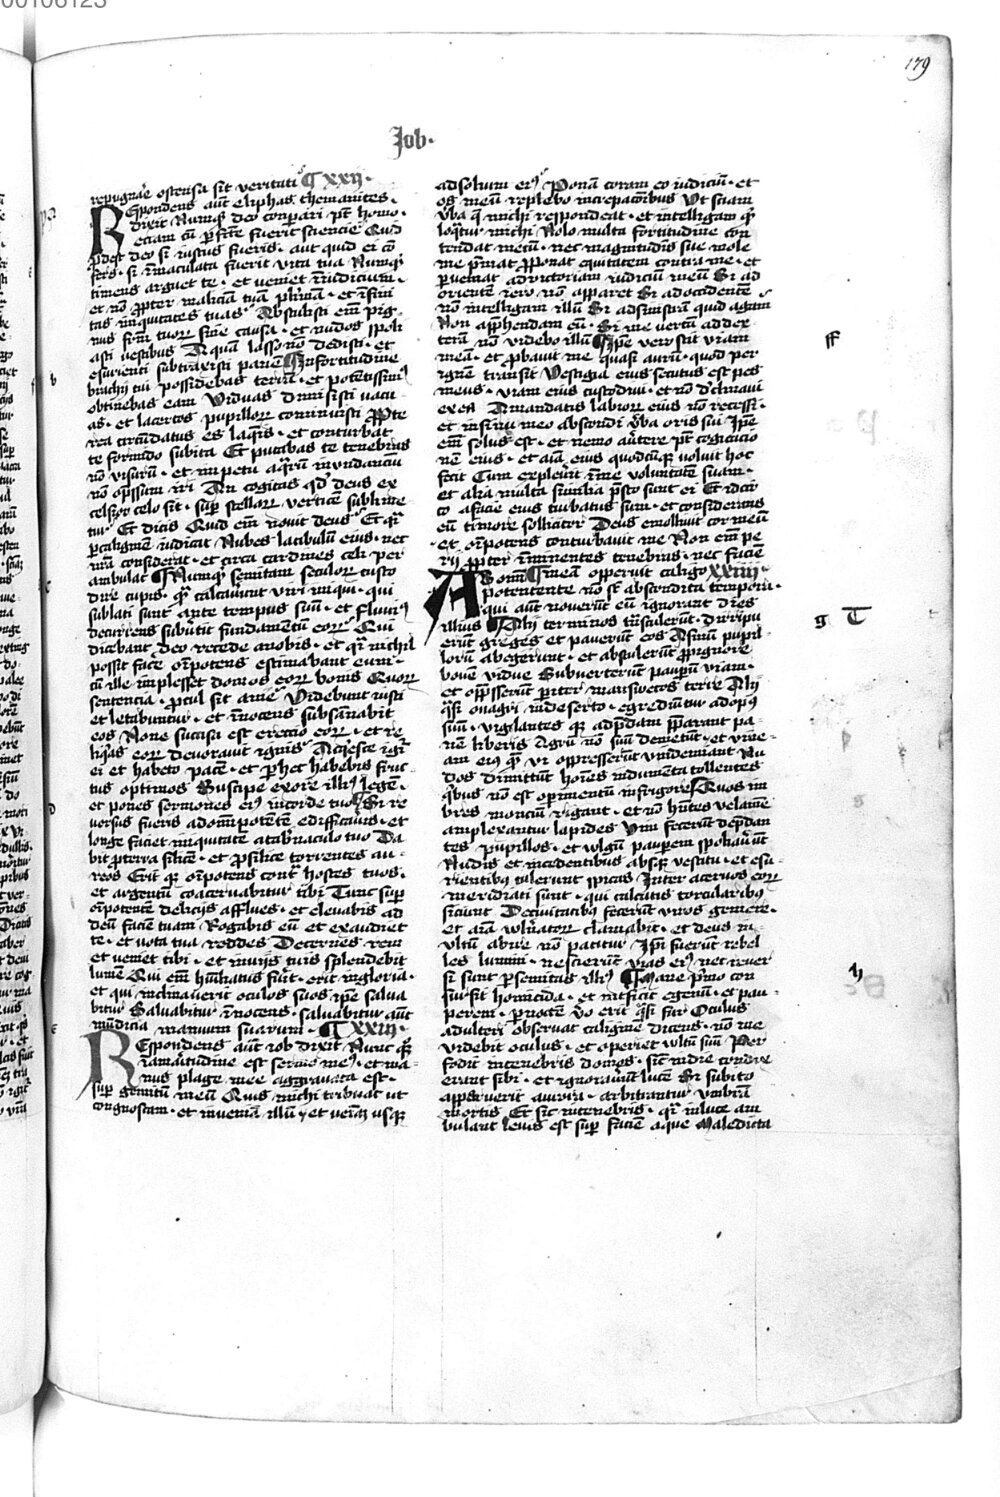 179
Job.
repugnare ostensa sit veritati ¶ xxij.
Respondens aut eliphas themanites.
dixit Numquid deo conparari pt homo.
etiam cu perfecte fuerit sciencie Quid
prodest deo si iustus fueris. aut quid ei co
fers. si inmaculata fuerit vita tua Numquid
timens arguet te. et veniet in iudicium.
et no propter maliciam tua plurima. et infini
tas iniquitates tuas Abstulisti em pig
nus frm tuor sine causa. et nudos spoli
asti vestibus Aquam lasso no dedisti. et
esurienti subtraxisti panem In fortitudine
brachij tui possidebas terram. et potentissimus
obtinebas eam Viduas dimisisti vacu
as. et lacertos pupillor cominuisti Propte
rea circundatus es laqueis. et conturbat
te formido subita Et putabas te tenebras
no visuru. et impetu aquaru inundanciu
no oppssum iri An cogitas qd deus ex
celsior celo sit. super stellar verticem sublime
tur Et dicis Quid em novit deus Et quasi
per caliginem iudicat Nubes latibulu eius. nec
nra considerat. et circa cardines celi per
ambulat Numquid semitam seculorum custo
dire cupis. qua calcaverunt viri iniqui. qui
sublati sunt ante tempus suu. et fluvius
decurrens subvertit fundamentu eor Qui
dicebant deo recede a nobis. et quasi nichil
possit facere omnipotens estimabant eum.
cu ille implesset domos eor bonis Quorum
sentencia. procul sit a me Videbunt iusti
et letabuntur. et innocens subsannabit
eos None succisa est ereccio eor. et re
liquias eor devoravit ignis Acquiesce igitur
ei et habeto pacem. et per hec habebis fruc
tus optimos Suscipe ex ore illius legem.
et pones sermones eius in corde tuo Si re
versus fueris ad omnipotentem edificaberis. et
longe facies iniquitatem a tabernaculo tuo Da
bit pro terra silicem. et pro silice torrentes au
reos Erit que omnipotens contra hostes tuos.
et argentum coacervabitur tibi Tunc super
omnipotentem delicijs afflues. et elevabis ad
deu faciem tuam Rogabis eu et exaudiet
te. et vota tua reddes Decernes rem
et veniet tibi. et in vijs tuis splendebit
lumen Qui em humiliatus fuerit. erit in gloria.
et qui inclinaverit oculos suos ipse salva
bitur Salvabitur innocens. salvabitur aut
mundicia manuum suarum. ¶ xxiij.
Respondens aut iob dixit Nunc quoque
in amaritudine est sermo meus. et ma
nus plage mee aggravata est.
super gemitum meum Quis michi tribuat ut
congnoscam. et inveniam illu et veniam usque
ad solium eius Ponam coram eo iudicium. et
os meum replebo increpacionibus Ut sciam
verba que michi respondeat. et intelligam quid
loquatur michi Nolo multa fortitudine con
tendat mecu. nec magnitudinis sue mole
me premat Proponat equitatem contra me. et
perveniat ad victoriam iudicium meum Si ad
orientem iero no apparet Si ad occidentem
no intelligam illu Si ad sinistram quid agam
Non apprehendam eu. Si me vertam ad dex
teram no videbo illu Ipse vero scit viam
meam. et probavit me quasi aurum. quod per
ignem transit Vestigia eius secutus est pes
meus. viam eius custodivi. et no declinavi
ex ea A mandatis labiorum eius no recessi.
et in sinu meo abscondi verba oris sui Ipse
em solus est. et nemo avertere pt cogitacio
nem eius. et aia eius quodcumque voluit hoc
fecit Cum expleverit in me voluntatem suam.
et alia multa similia presto sunt ei Et idcir
co a facie eius turbatus sum. et considerans
eu timore sollicitor Deus emollivit cor meum
et omnipotens conturbavit me Non em pe
rij propter imminentes tenebras. nec faciem
meam operuit caligo xxiiij.
Ab omnipotente no st abscondita tempora.
qui aut noverunt eu ignorant dies
illius Alij terminos transtulerunt. diripu
erunt greges et paverunt eos Asinum pupil
lorum abegerunt. et abstulerunt pro pignore
bovem vidue Subverterunt pauperum viam.
et oppresserunt pariter mansuetos terre Alij
quasi onagri in deserto. egrediuntur ad opus
suum. vigilantes que ad predam preparant pa
nem liberis Agrum no suum demetunt. et vine
am eius quem vi oppresserunt vindemiant Nu
dos dimittunt homines indumenta tollentes
quibus non est operimentum in frigore Quos im
bres moncium rigant. et no habentes velamen
amplexantur lapides Vim fecerunt depredan
tes pupillos. et wlgum pauperem spoliaverunt
Nudis et incedentibus absque vestitu. et esu
rientibus tulerunt spicas Inter acervos eorum
meridiati sunt. qui calcatis torcularibus
siciunt De civitatibus fecerunt viros gemere.
et aia wlneratorum clamabit. et deus in
ultum abire non patitur Ipsi fuerunt rebel
les lumini. nescierunt vias eius nec rever
si sunt per semitas illius Mane primo con
surgit homicida. et interficit egenum. et pau
perem. per noctem vero erit quasi fur Oculus
adulteri observat caliginem dicens. no me
videbit oculus. et operiet wltum suum Per
fodit in tenebris domos. sicut in die condixe
erant sibi. et ignoraverunt lucem Si subito
apparuerit aurora. arbitrantur umbram
mortis Et sic in tenebris. quasi in luce am
bulant Levis est super faciem aque Maledicta
ff
g T
h